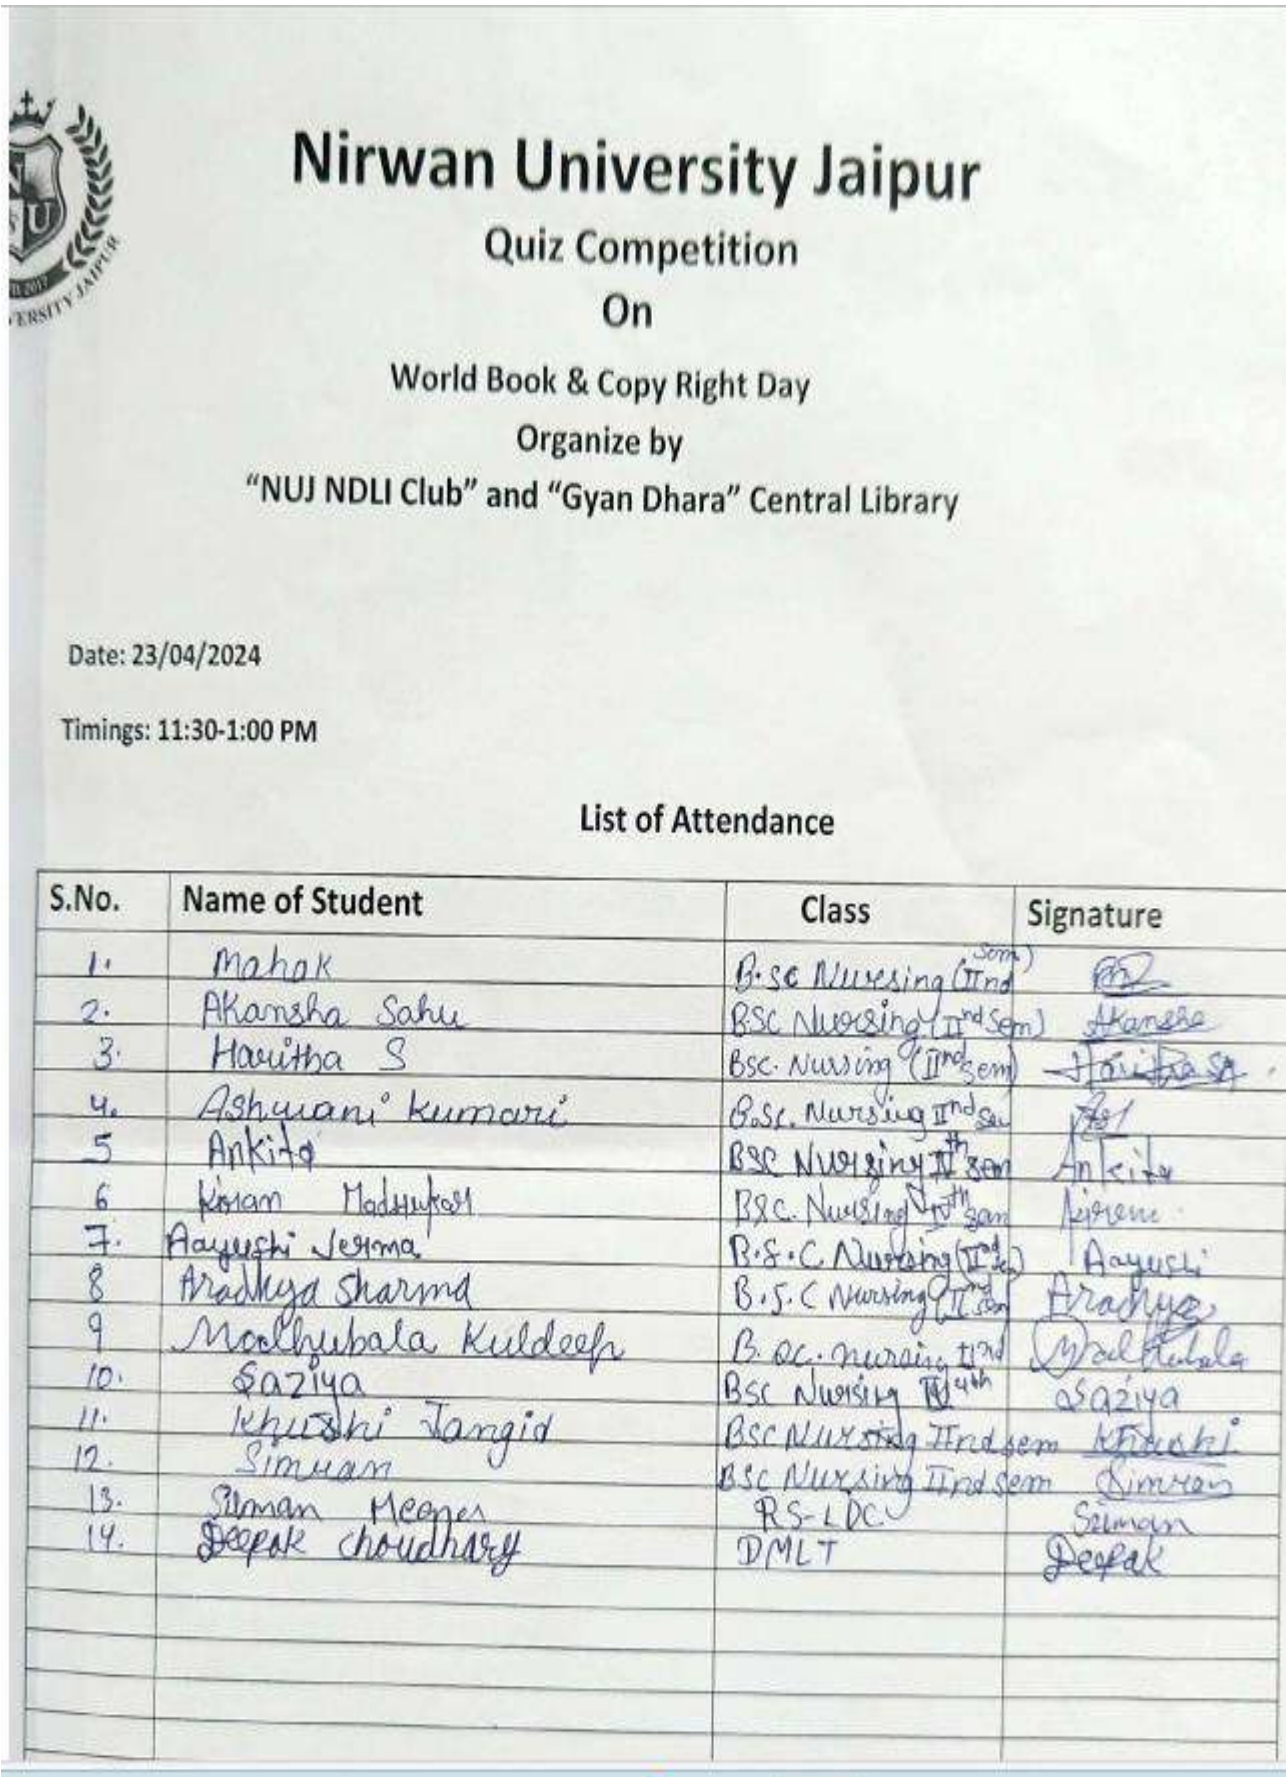 N
S U
TD 2017
ERSITY JAIPUR
Nirwan University Jaipur
Quiz Competition
On
World Book & Copy Right Day
Organize by
“NUJ NDLI Club” and “Gyan Dhara” Central Library
Date: 23/04/2024
Timings: 11:30-1:00 PM
List of Attendance
S.No. Name of Student Class Signature
1. Mahak B.sc Nursing (IInd Sem)
2. Akansha Sahu BSC Nursing (IInd Sem) Akansha
3. Haritha S Bsc. Nursing (IInd sem) Haritha S
4. Ashwani Kumari B.Sc. Nursing IInd
5 Ankita BSC Nursing IVth sem Ankita
6 Kiran Madhukar BSC. Nursing IVth sem
7. Aayushi Verma B.S.C Nursing (IInd sem) Aayushi
8 Aradhya Sharma B.S.C Nursing (IInd sem Aradhya
9 Madhubala Kuldeep B. sc. nursing IInd Madhubala
10. Saziya BSC Nursing 4th Saziya
11. Khushi Jangid BSC Nursing IInd sem Khushi
12. Simran BSC Nursing IInd Sem Simran
13. Suman Meena RS-LDC Suman
14. Deepak Choudhary DMLT Deepak